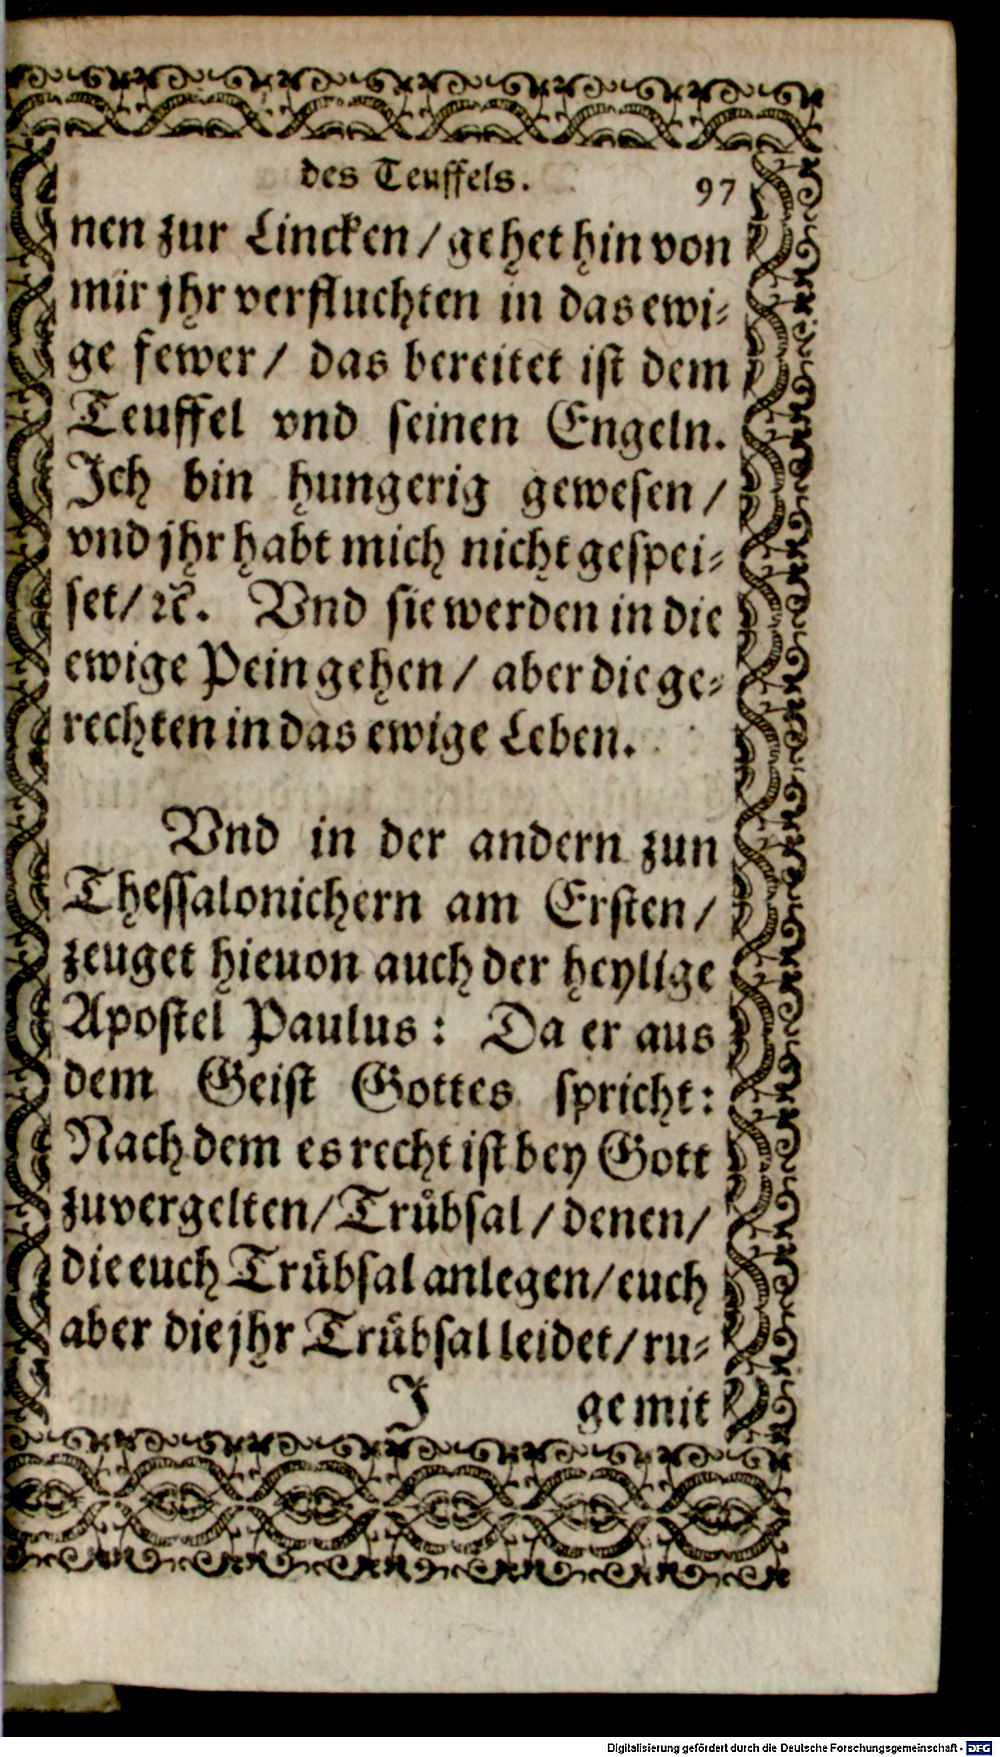 des Teuffels. 97
nen zur Lincken / gehet hin von
mir jhr verfluchten in das ewi-
ge fewer / das bereitet ist dem
Teuffel vnd seinen Engeln.
Ich bin hungerig gewesen /
vnd jhr habt mich nicht gespei-
set / ꝛc̃. Vnd sie werden in die
ewige Pein gehen / aber die ge-
rechten in das ewige Leben.
Vnd in der andern zun
Thessalonichern am Ersten /
zeuget hieuon auch der heylige
Apostel Paulus: Da er aus
dem Geist Gottes spricht:
Nach dem es recht ist bey Gott
zuvergelten / Trůbsal / denen /
die euch Trůbsal anlegen / euch
aber die jhr Trůbsal leidet / ru-
J ge mit
Digitalisierung gefördert durch die Deutsche Forschungsgemeinschaft - DFG